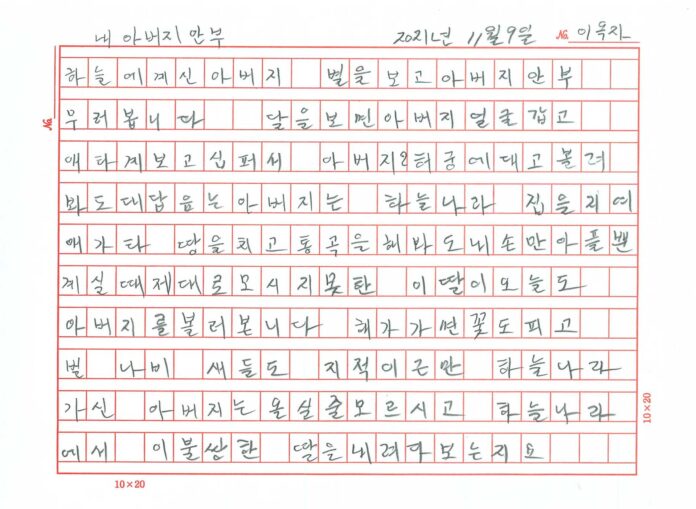 내 아버지 안부 2021년 11월 9일 № 이옥자
하늘에계신아버지 별을 보고 아버지 안부
무러봅니다 달을보면아버지얼굴갑고
애타게보고십퍼서 아버지2허궁에대고불려
봐도대답읍는아버지는 하늘나라 집을지여
애가타 땅을치고통곡을해봐도내손만아플뿐
계실때제대로모시지못한 이딸이오늘도
아버지를불러본니다 해가가면꽃도피고
벌 나비 새들도 지적이근만 하늘나라
가신 아버지는옥실줄모르시고 하늘나라
에서 이불쌍한 딸을내려다보는지요
№
10×20
10×20